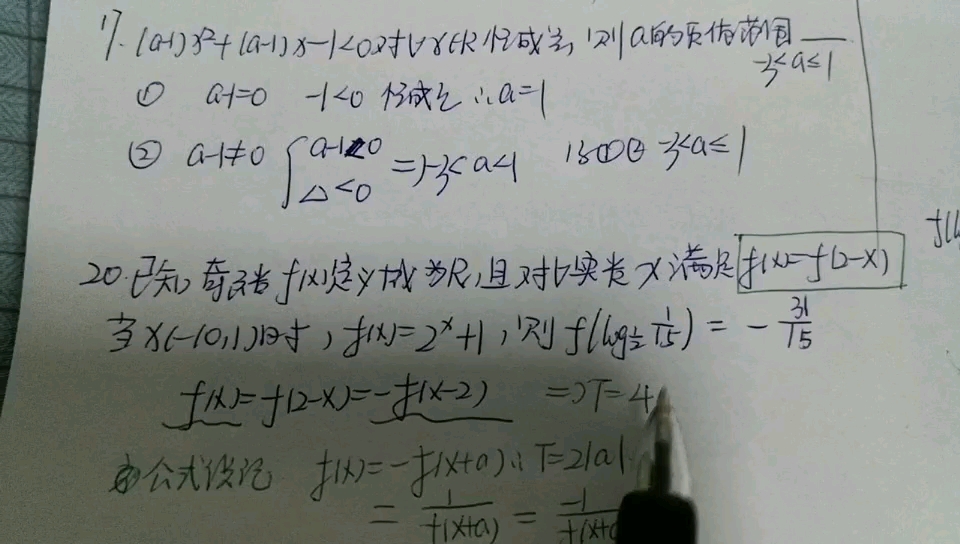 17. (a-1)x²+(a-1)x-1<0对∀x∈R恒成立, 则a的取值范围____
-3<a≤1
① a-1=0 -1<0 恒成立 ∴a=1
② a-1≠0 { a-1<0 △<0 => -3<a<1 综①② -3<a≤1
20.已知奇函数f(x)定义域为R,且对∀实数x满足 f(x)=f(2-x)
当x(-10,1)时, f(x)=2ˣ+1, 则f(log½ 1/15) = - 31/15
f(x)=f(2-x)=-f(x-2) =>T=4
公式 f(x)=-f(x+a)∴T=2|a|
= 1/f(x+a) = -1/f(x+a